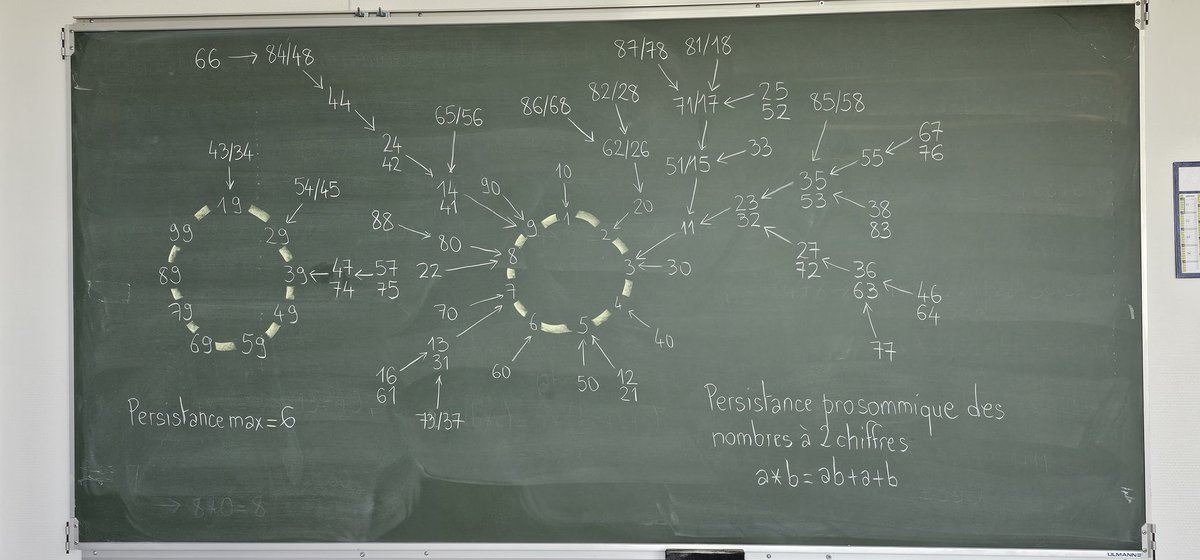 66 → 84/48
87/78 81/18
44
82/28
71/17
25
52
85/58
65/56
86/68
24
42
62/26
51/15
33
55
67
76
43/34
54/45
14
41
90
10
35
53
19
9
1
20
23
32
38
83
99
29
88
80
8
2
11
27
72
89
39
47
74
57
75
22
7
3
30
36
63
46
64
79
49
70
6
5
4
40
69
59
13
31
16
61
60
50
12
21
77
73/37
Persistance max = 6
Persistance prosommique des
nombres à 2 chiffres
a*b = ab+a+b
→ 8*0=8
ULMANN